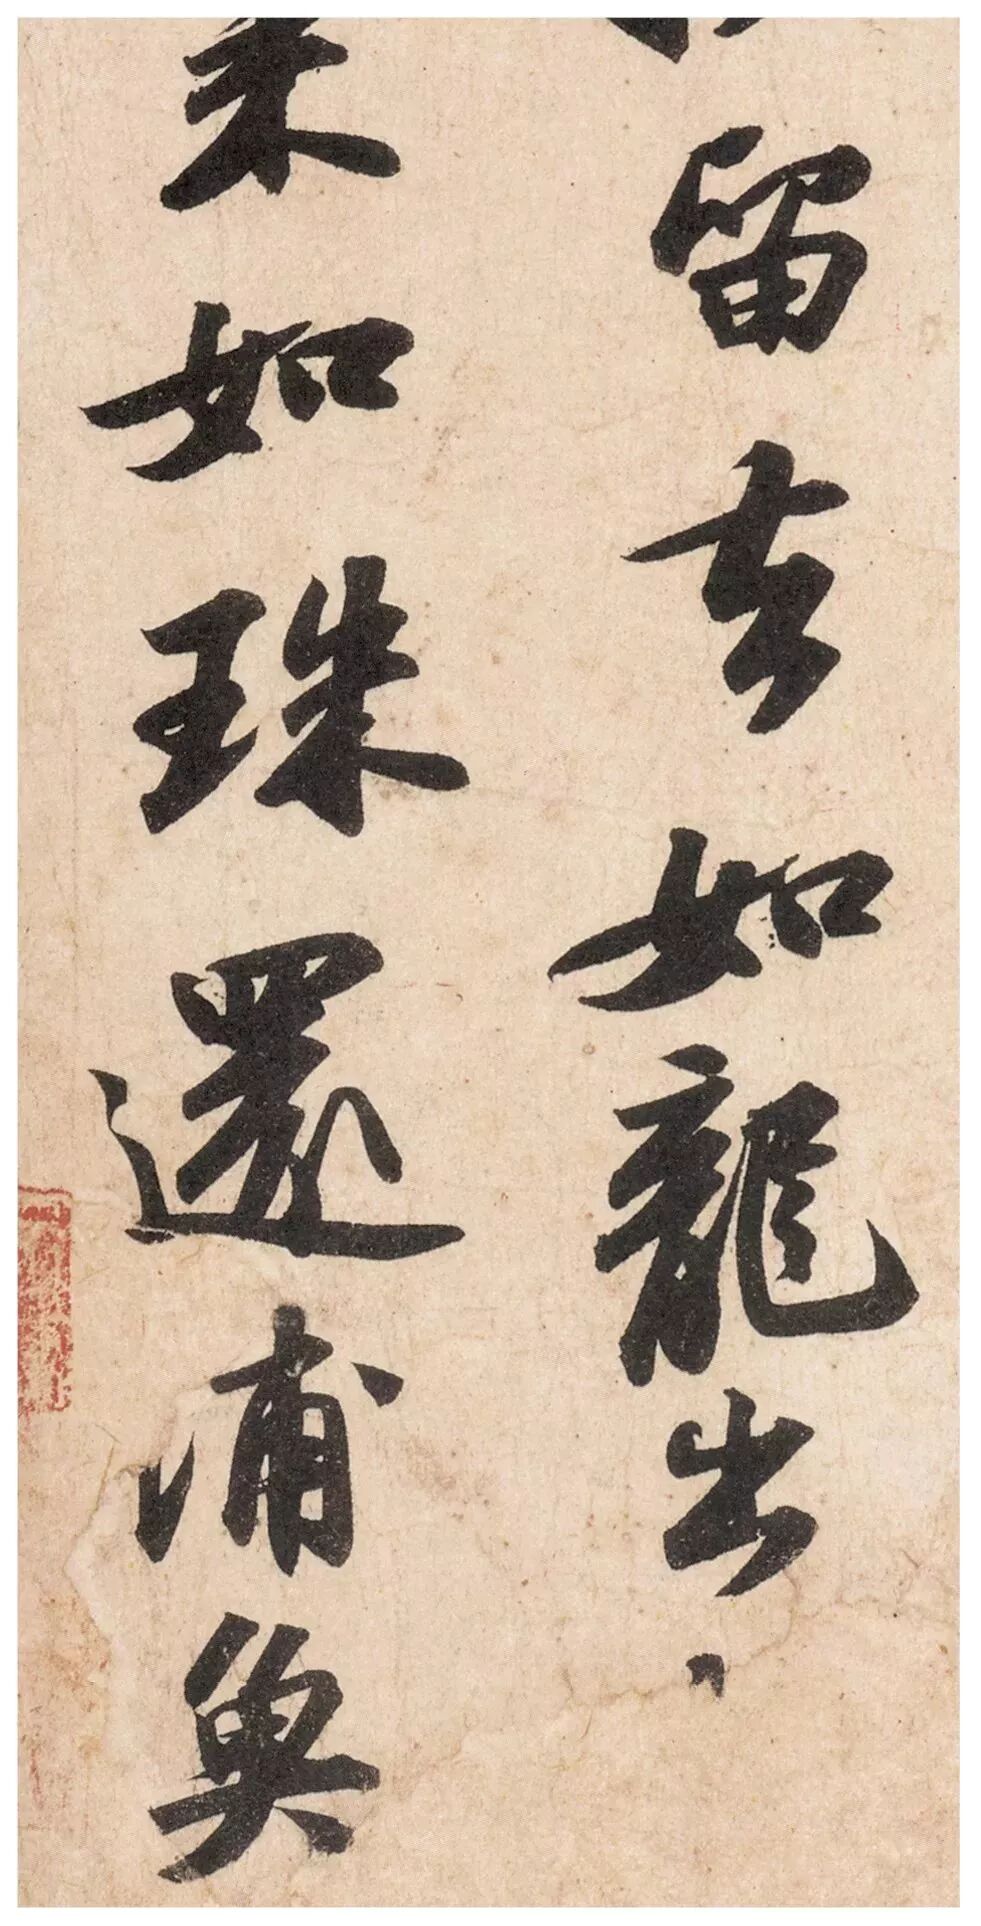 留去如龍出
来如珠還浦魚